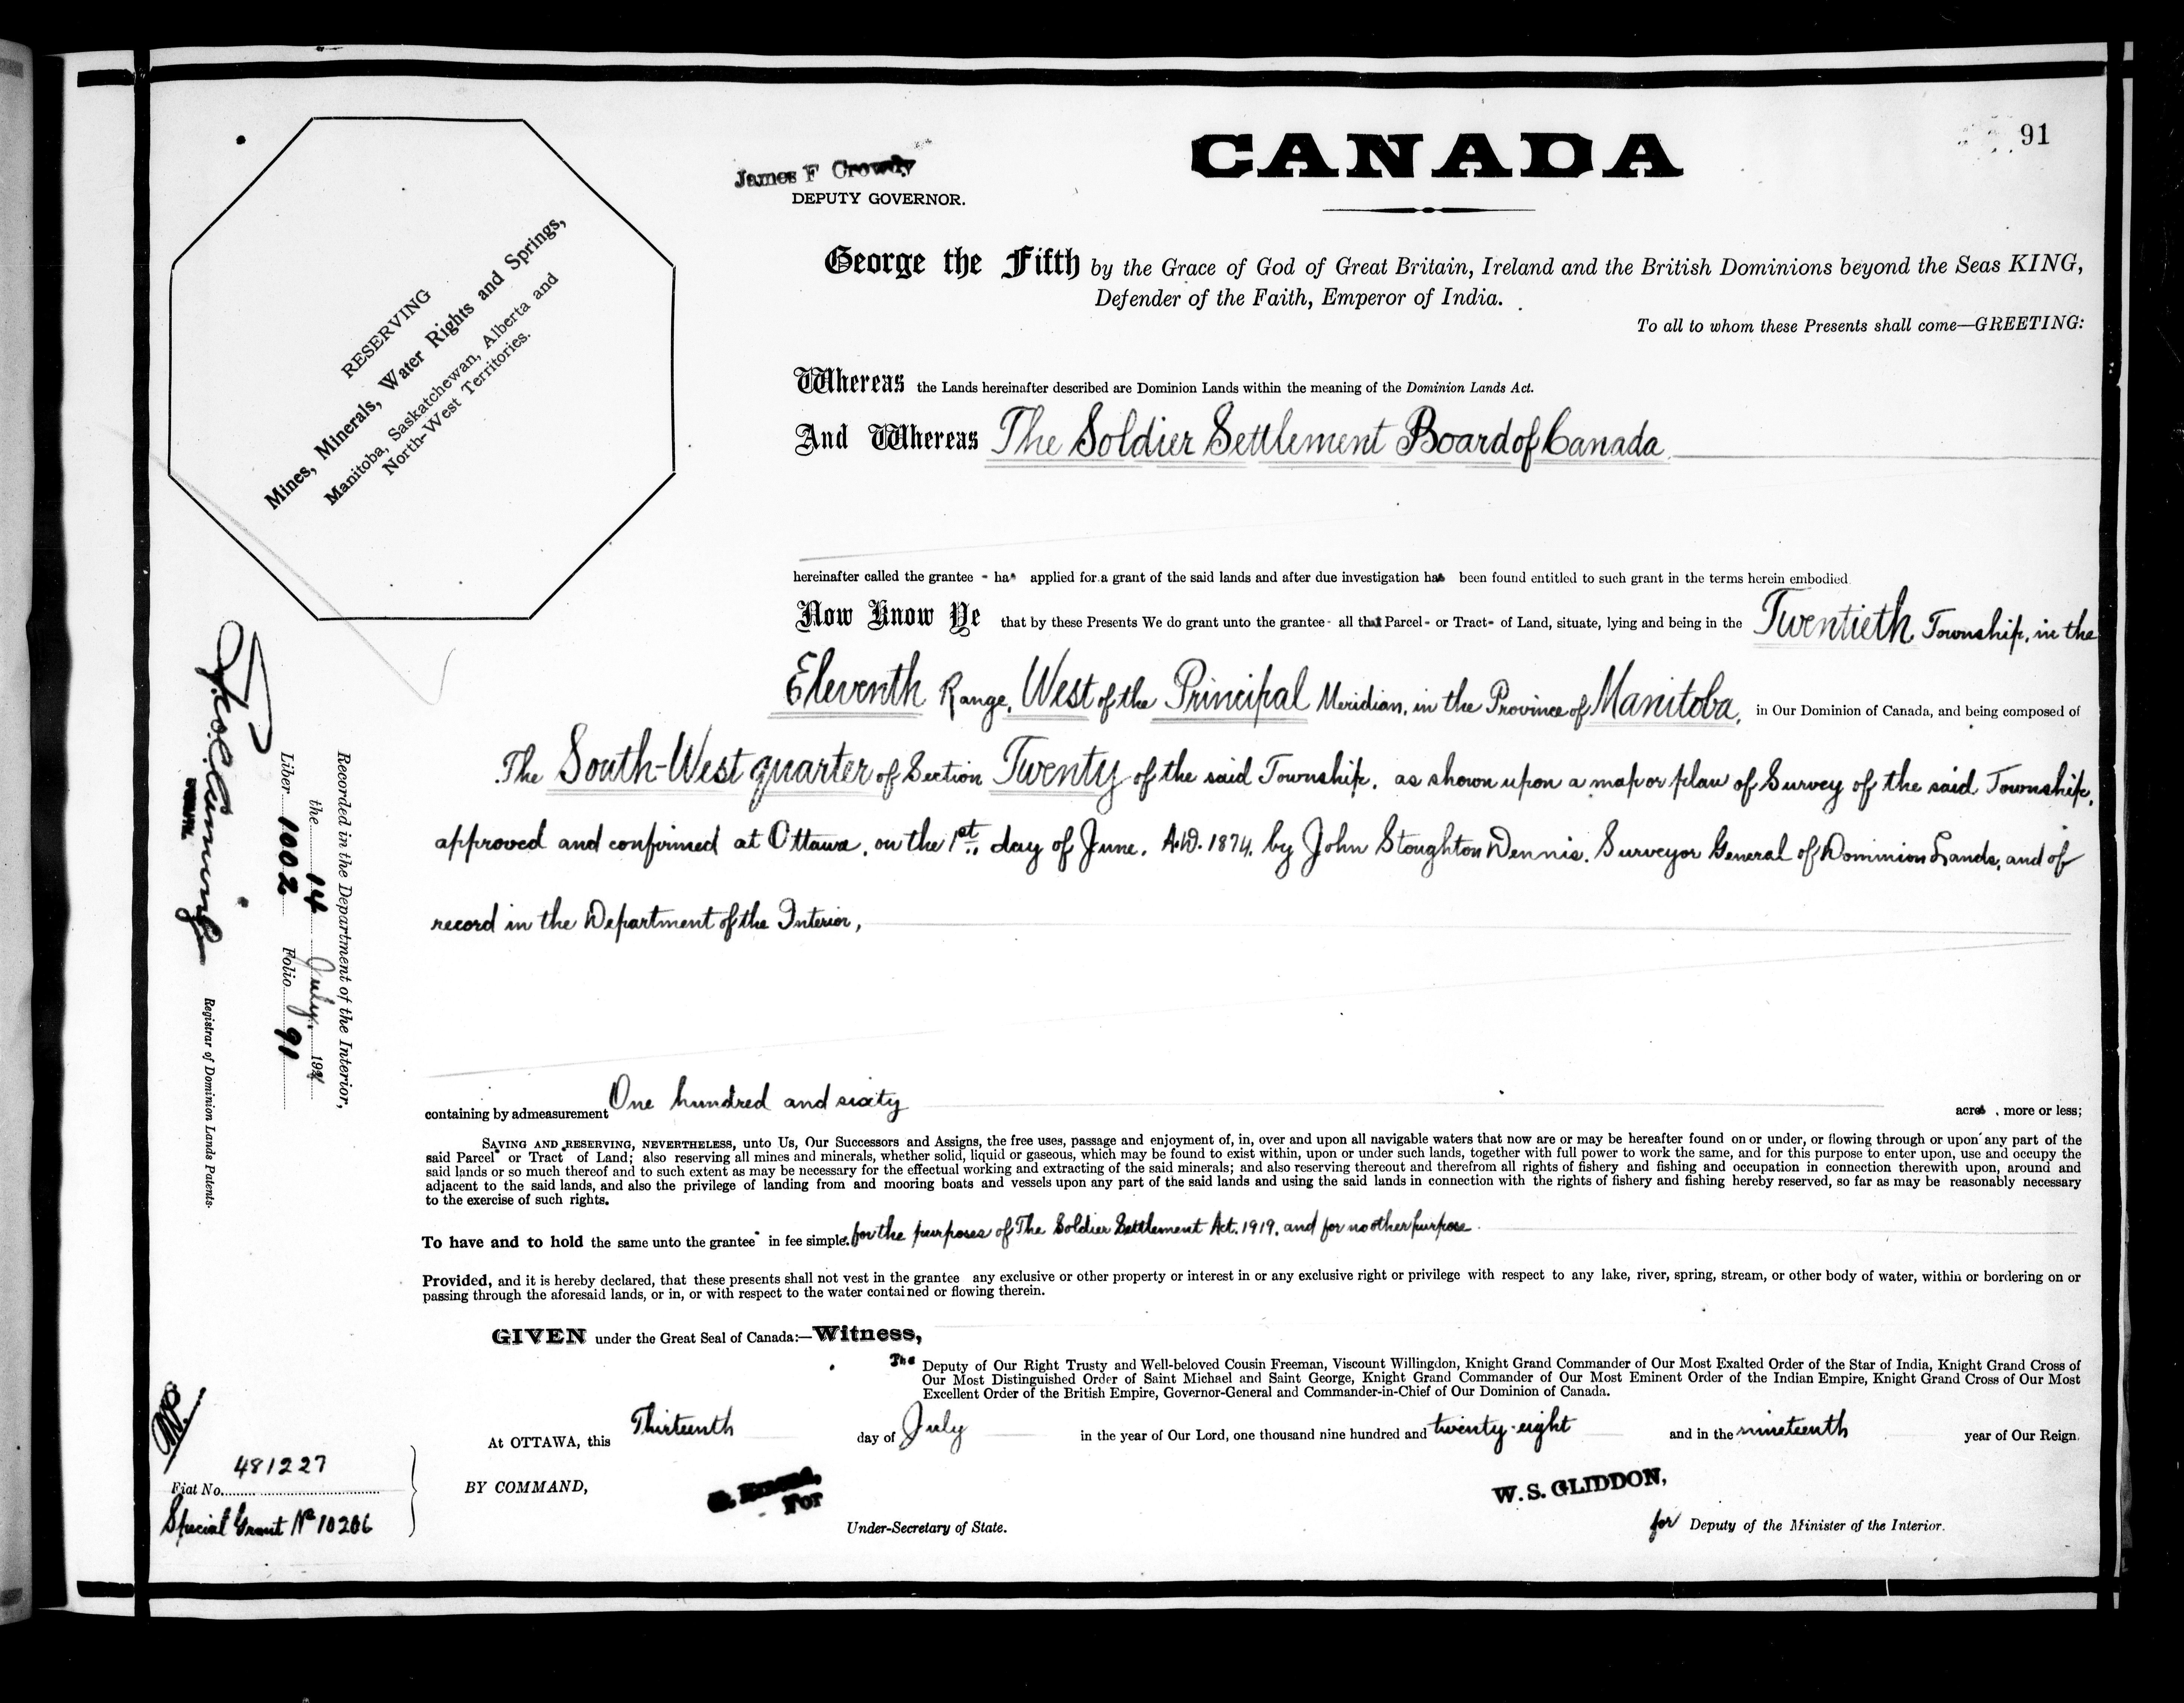 91
CANADA
James F Crowdy
DEPUTY GOVERNOR.
RESERVING
Mines, Minerals, Water Rights and Springs,
Manitoba, Saskatchewan, Alberta and
North-West Territories.
George the Fifth by the Grace of God of Great Britain, Ireland and the British Dominions beyond the Seas KING,
Defender of the Faith, Emperor of India.
To all to whom these Presents shall come—GREETING:
Whereas the Lands hereinafter described are Dominion Lands within the meaning of the Dominion Lands Act.
And Whereas The Soldier Settlement Board of Canada
hereinafter called the grantee - has applied for a grant of the said lands and after due investigation has been found entitled to such grant in the terms herein embodied
Now Know Ye that by these Presents We do grant unto the grantee - all that Parcel - or Tract - of Land, situate, lying and being in the Twentieth Township, in the
Eleventh Range, West of the Principal Meridian, in the Province of Manitoba, in Our Dominion of Canada, and being composed of
The South-West quarter of Section Twenty of the said Township, as shown upon a map or plan of Survey of the said Township,
approved and confirmed at Ottawa, on the 1st, day of June, A.D. 1874, by John Stoughton Dennis, Surveyor General of Dominion Lands, and of
record in the Department of the Interior,
containing by admeasurement One hundred and sixty acres, more or less;
SAVING AND RESERVING, NEVERTHELESS, unto Us, Our Successors and Assigns, the free uses, passage and enjoyment of, in, over and upon all navigable waters that now are or may be hereafter found on or under, or flowing through or upon any part of the
said Parcel or Tract of Land; also reserving all mines and minerals, whether solid, liquid or gaseous, which may be found to exist within, upon or under such lands, together with full power to work the same, and for this purpose to enter upon, use and occupy the
said lands or so much thereof and to such extent as may be necessary for the effectual working and extracting of the said minerals; and also reserving thereout and therefrom all rights of fishery and fishing and occupation in connection therewith upon, around and
adjacent to the said lands, and also the privilege of landing from and mooring boats and vessels upon any part of the said lands and using the said lands in connection with the rights of fishery and fishing hereby reserved, so far as may be reasonably necessary
to the exercise of such rights.
To have and to hold the same unto the grantee in fee simple. for the purposes of The Soldier Settlement Act. 1919. and for no other purpose
Provided, and it is hereby declared, that these presents shall not vest in the grantee any exclusive or other property or interest in or any exclusive right or privilege with respect to any lake, river, spring, stream, or other body of water, within or bordering on or
passing through the aforesaid lands, or in, or with respect to the water contained or flowing therein.
GIVEN under the Great Seal of Canada:—Witness,
The Deputy of Our Right Trusty and Well-beloved Cousin Freeman, Viscount Willingdon, Knight Grand Commander of Our Most Exalted Order of the Star of India, Knight Grand Cross of
Our Most Distinguished Order of Saint Michael and Saint George, Knight Grand Commander of Our Most Eminent Order of the Indian Empire, Knight Grand Cross of Our Most
Excellent Order of the British Empire, Governor-General and Commander-in-Chief of Our Dominion of Canada.
At OTTAWA, this Thirteenth day of July in the year of Our Lord, one thousand nine hundred and twenty-eight and in the nineteenth year of Our Reign.
BY COMMAND,
For
Under-Secretary of State.
W. S. GLIDDON,
for Deputy of the Minister of the Interior.
Recorded in the Department of the Interior,
the 14 July. 192
Liber 1002 Folio 91
Registrar of Dominion Lands Patents.
Fiat No. 481227
Special Grant No 10206